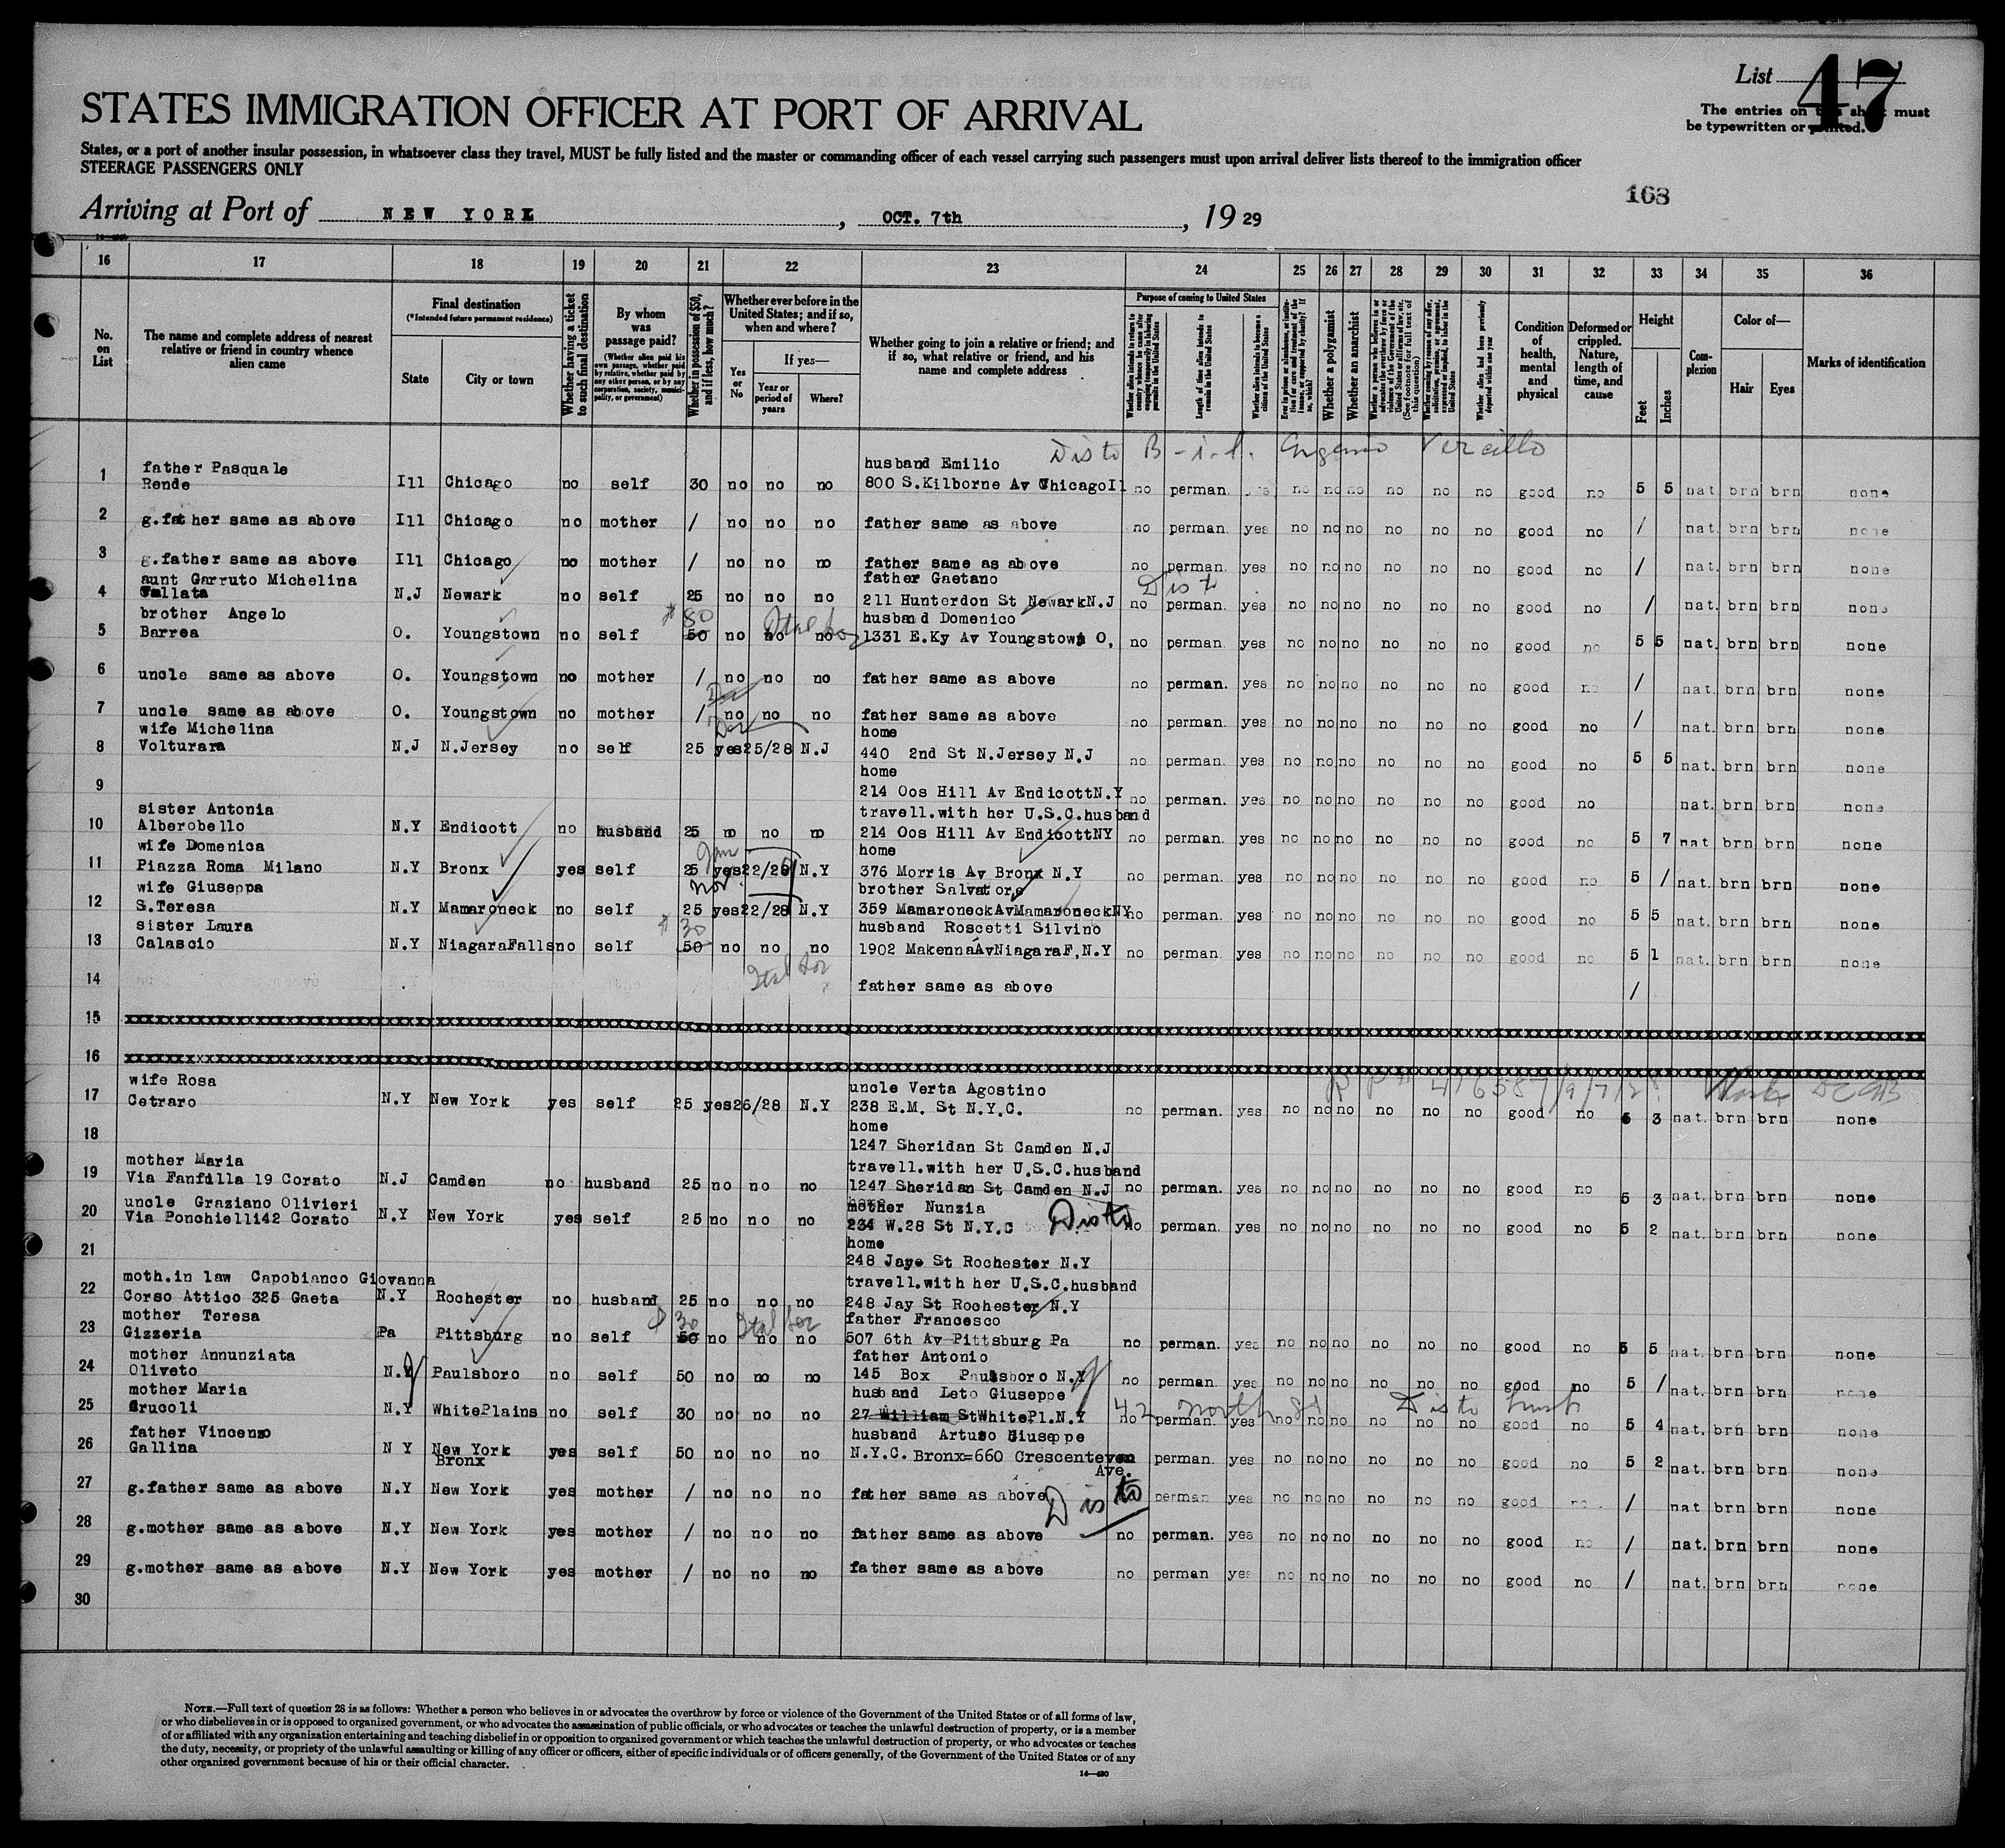 List 47
STATES IMMIGRATION OFFICER AT PORT OF ARRIVAL
The entries on this sheet must
be typewritten or printed.
States, or a port of another insular possession, in whatsoever class they travel, MUST be fully listed and the master or commanding officer of each vessel carrying such passengers must upon arrival deliver lists thereof to the immigration officer
STEERAGE PASSENGERS ONLY
168
Arriving at Port of NEW YORK, OCT. 7th, 19 29
16 17 18 19 20 21 22 23 24 25 26 27 28 29 30 31 32 33 34 35 36
No. on List
The name and complete address of nearest relative or friend in country whence alien came
Final destination
(*Intended future permanent residence)
State
City or town
Whether having a ticket to such final destination
By whom was passage paid?
(Whether alien paid his own passage, whether paid by relative, whether paid by any other person, or by any corporation, society, municipality, or government)
Whether in possession of $50, and if less, how much?
Whether ever before in the United States; and if so, when and where?
Yes or No
If yes—
Year or period of years
Where?
Whether going to join a relative or friend; and if so, what relative or friend, and his name and complete address
Purpose of coming to United States
Length of time alien intends to remain in the United States
Whether alien intends to become a citizen of the United States
Whether a polygamist
Whether an anarchist
Whether alien had been previously deported within one year
Condition of health, mental and physical
Deformed or crippled. Nature, length of time, and cause
Height
Feet
Inches
Complexion
Color of—
Hair
Eyes
Marks of identification
Disto B-i-l. Eugenio Vercillo
father Pasquale husband Emilio
1 Rende Ill Chicago no self 30 no no no 800 S.Kilborne Av ChicagoIl no perman. yes no no no no no no good no 5 5 nat. brn brn none
2 g.father same as above Ill Chicago no mother / no no no father same as above no perman. yes no no no no no no good no / nat. brn brn none
3 g.father same as above Ill Chicago no mother / no no no father same as above no perman. yes no no no no no no good no / nat. brn brn none
aunt Garruto Michelina father Gaetano Dist
4 Wallata N.J Newark no self 25 no no no 211 Hunterdon St NewarkN.J no perman. yes no no no no no no good no / nat. brn brn none
brother Angelo $80 husband Domenico
5 Barrea O. Youngstown no self 50 no no no 1331 E.Ky Av Youngstown O, no perman. yes no no no no no no good no 5 5 nat. brn brn none
6 uncle same as above O. Youngstown no mother / no no no father same as above no perman. yes no no no no no no good no / nat. brn brn none
7 uncle same as above O. Youngstown no mother / no no no father same as above no perman. yes no no no no no no good no / nat. brn brn none
wife Michelina home
8 Volturara N.J N.Jersey no self 25 yes 25/28 N.J 440 2nd St N.Jersey N.J no perman. yes no no no no no no good no 5 5 nat. brn brn none
home
9 214 Oos Hill Av EndicottN.Y no perman. yes no no no no no no good no nat. brn brn none
sister Antonia travell.with her U.S.C.husband
10 Alberobello N.Y Endicott no husband 25 no no no 214 Oos Hill Av EndicottNY no perman. yes no no no no no no good no 5 7 nat brn brn none
wife Domenica home
11 Piazza Roma Milano N.Y Bronx yes self 25 yes 22/29 N.Y 376 Morris Av Bronx N.Y no perman. yes no no no no no no good no 5 / nat. brn brn none
wife Giuseppa Nov. brother Salvatore
12 S.Teresa N.Y Mamaroneck no self 25 yes 22/28 N.Y 359 MamaroneckAvMamaroneckNY no perman. yes no no no no no no good no 5 5 nat. brn brn none
sister Laura $30 husband Roscetti Silvino
13 Calascio N.Y NiagaraFalls no self 50 no no no 1902 MakennaAvNiagaraF,N.Y no perman. yes no no no no no no good no 5 1 nat. brn brn none
14 father same as above /
15
16
wife Rosa uncle Verta Agostino
17 Cetraro N.Y New York yes self 25 yes 26/28 N.Y 238 E.M. St N.Y.C. no perman. yes no no no no no no good no 5 3 nat. brn brn none
home
18 1247 Sheridan St Camden N.J
mother Maria travell.with her U.S.C.husband
19 Via Fanfilla 19 Corato N.J Camden no husband 25 no no no 1247 Sheridan St Camden N.J no perman. yes no no no no no no good no 5 3 nat. brn brn none
uncle Graziano Olivieri mother Nunzia Disto
20 Via Ponchielli42 Corato N.Y New York yes self 25 no no no 234 W.28 St N.Y.C no perman. yes no no no no no no good no 5 2 nat. brn brn none
home
21 248 Jaye St Rochester N.Y
moth.in law Capobianco Giovanna travell.with her U.S.C.husband
22 Corso Attico 325 Gaeta N.Y Rochester no husband 25 no no no 248 Jay St Rochester N.Y
mother Teresa $30 father Francesco
23 Gizzeria Pa Pittsburg no self 50 no no no 507 6th Av Pittsburg Pa no perman. yes no no no no no no good no 5 5 nat. brn brn none
mother Annunziata father Antonio
24 Oliveto N.Y Paulsboro no self 50 no no no 145 Box Paulsboro N.Y no perman. yes no no no no no no good no 5 / nat. brn brn none
mother Maria husband Leto Giuseppe 42 North St Disto husb
25 Crucoli N.Y WhitePlains no self 30 no no no 27 William StWhitePl.N.Y no perman. yes no no no no no no good no 5 4 nat. brn brn none
father Vincenzo husband Artuso Giuseppe
26 Gallina N Y New York Bronx yes self 50 no no no N.Y.C. Bronx=660 Crescenteven Ave. perman. yes no no no no no no good no 5 2 nat. brn brn none
27 g.father same as above N.Y New York yes mother / no no no father same as above Disto perman yes no no no no no no good no. / nat brn brn none
28 g.mother same as above N.Y New York yes mother / no no no father same as above no perman. yes no no no no no no good no / nat. brn brn none
29 g.mother same as above N.Y New York yes mother / no no no father same as above no perman yes no no no no no no good no / nat. brn brn none
30
NOTE.—Full text of question 28 is as follows: Whether a person who believes in or advocates the overthrow by force or violence of the Government of the United States or of all forms of law,
or who disbelieves in or is opposed to organized government, or who advocates the assassination of public officials, or who advocates or teaches the unlawful destruction of property, or is a member
of or affiliated with any organization entertaining and teaching disbelief in or opposition to organized government or which teaches the unlawful destruction of property, or who advocates or teaches
the duty, necessity, or propriety of the unlawful assaulting or killing of any officer or officers, either of specific individuals or of officers generally, of the Government of the United States or of any
other organized government because of his or their official character.
14—480